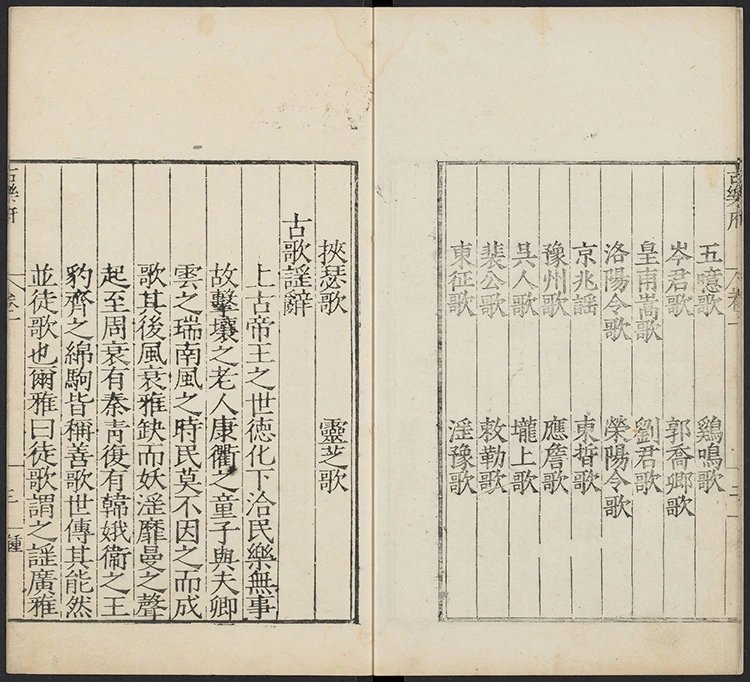 古樂府 卷一 二
五噫歌 鷄鳴歌
岑君歌 郭喬卿歌
皇甫嵩歌 劉君歌
洛陽令歌 榮陽令歌
京兆謠 束晳歌
豫州歌 應詹歌
吳人歌 壠上歌
裴公歌 敕勒歌
東征歌 淫豫歌
挾瑟歌 靈芝歌
古歌謠辭
上古帝王之世德化下洽民樂無事
故擊壤之老人康衢之童子與夫卿
雲之瑞南風之時民莫不因之而成
歌其後風衰雅缺而妖淫靡曼之聲
起至周衰有秦靑復有韓娥衞之王
豹齊之綿駒皆稱善歌世傳其能然
並徒歌也爾雅曰徒歌謂之謠廣雅
古樂府 卷一 三 鍾